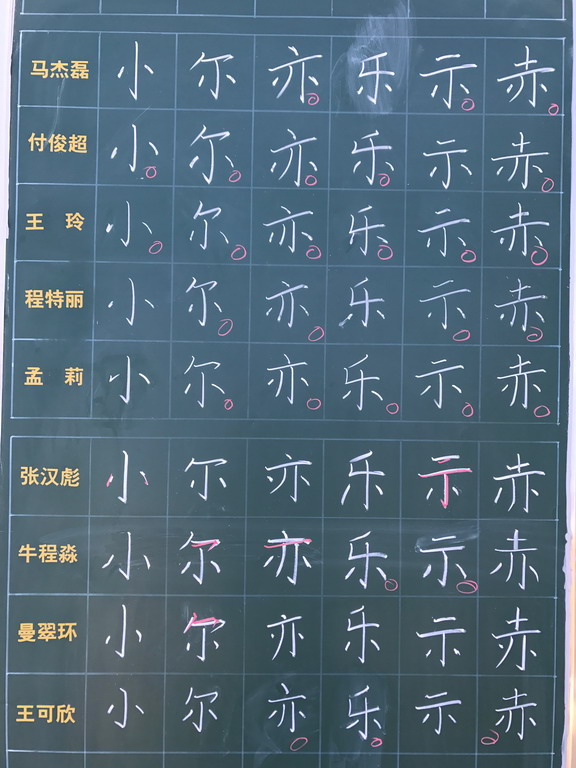 马杰磊 小 尔 亦 乐 示 赤
付俊超 小 尔 亦 乐 示 赤
王 玲 小 尔 亦 乐 示 赤
程特丽 小 尔 亦 乐 示 赤
孟 莉 小 尔 亦 乐 示 赤
张汉彪 小 尔 亦 乐 示 赤
牛程淼 小 尔 亦 乐 示 赤
曼翠环 小 尔 亦 乐 示 赤
王可欣 小 尔 亦 乐 示 赤